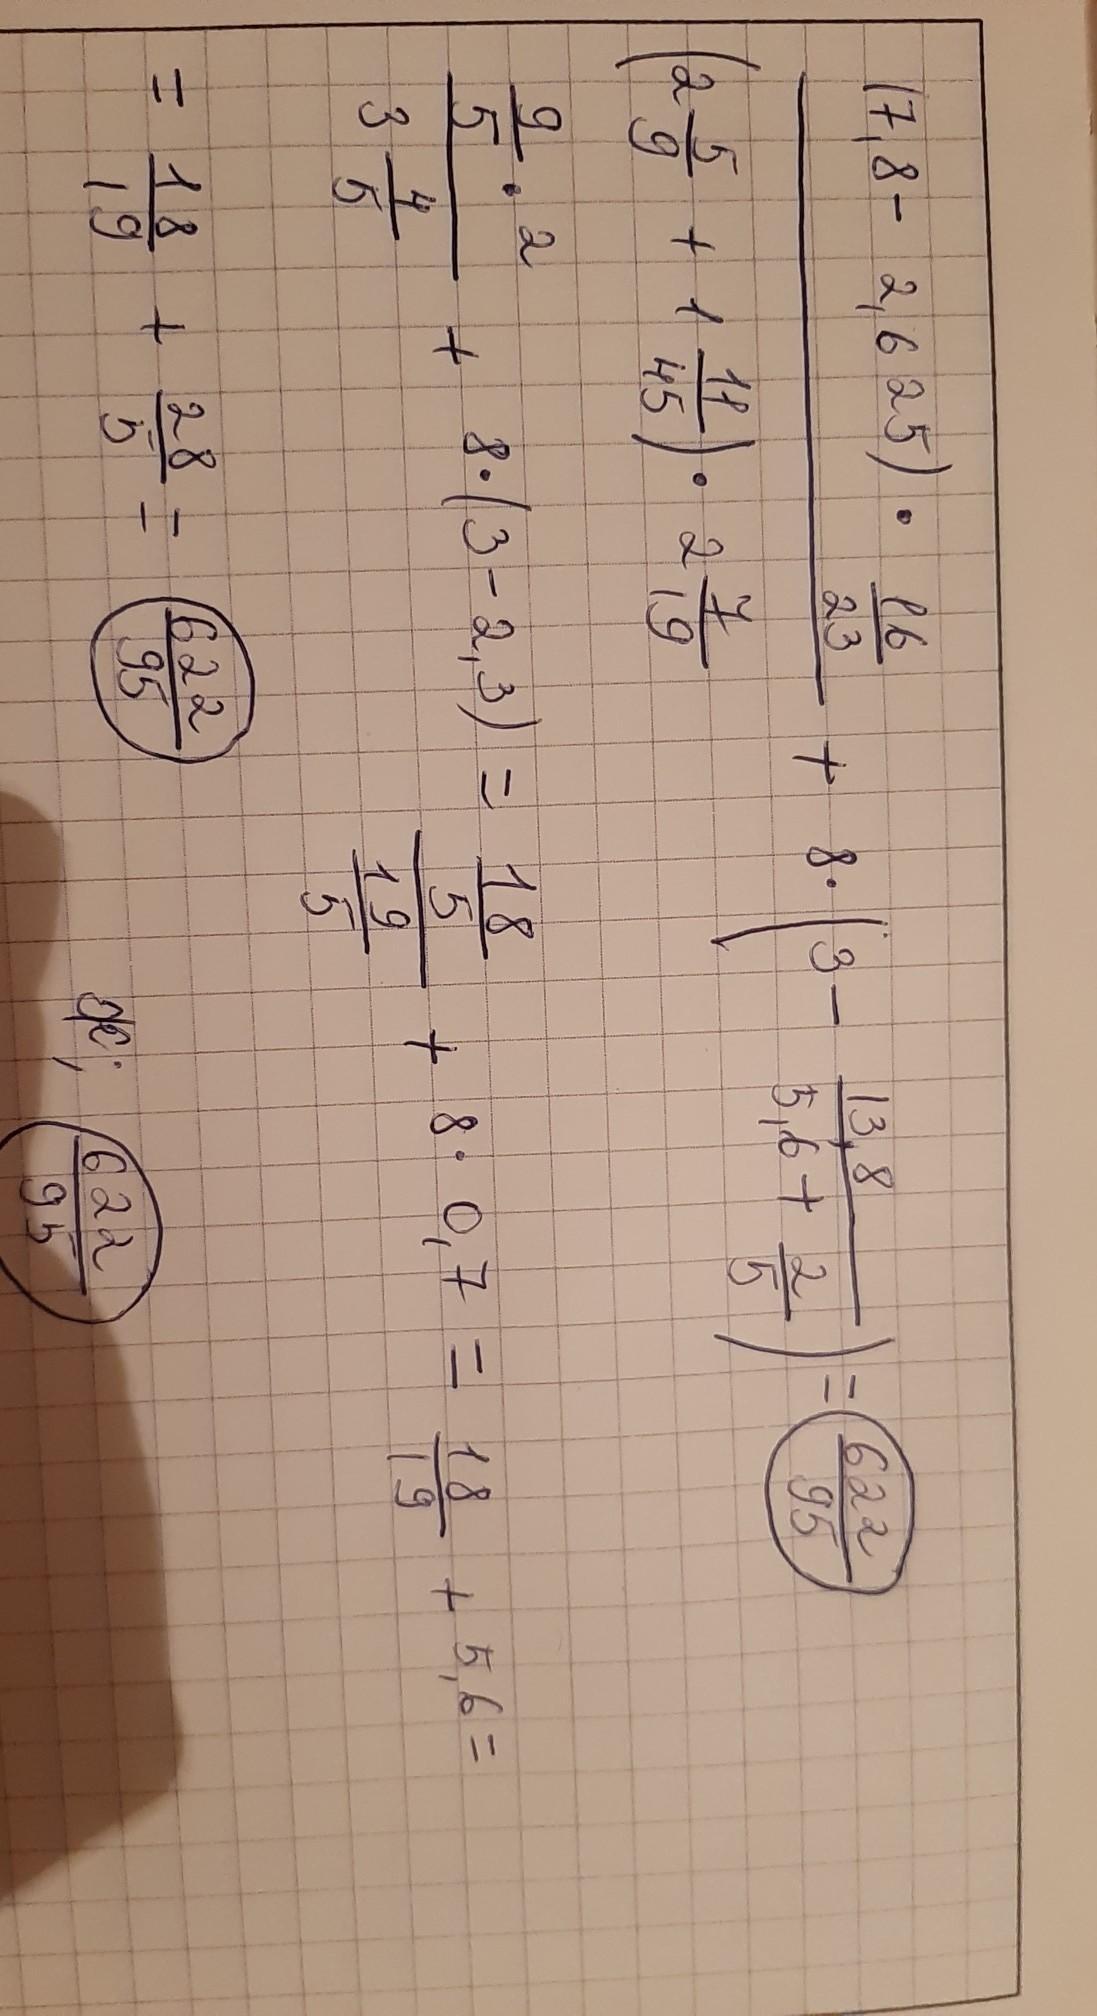 (7,8 - 2,625) · 16/23 / (2 5/9 + 1 11/45) · 2 7/19 + 8 · (3 - 13,8 / 5,6 + 2/5) = 622/95
9/5 · 2 / 3 4/5 + 8 · (3 - 2,3) = 18/5 / 19/5 + 8 · 0,7 = 18/19 + 5,6 =
= 18/19 + 28/5 = 622/95
622/95